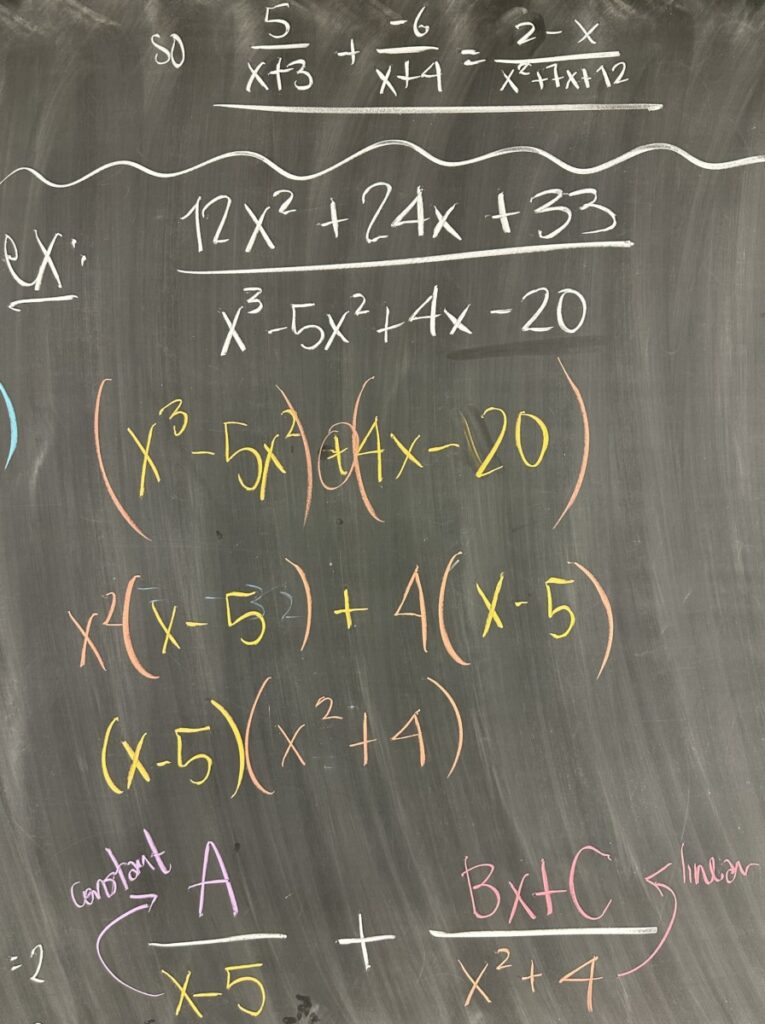 so 5/(x+3) + -6/(x+4) = (2-x)/(x²+7x+12)
ex: (12x² + 24x + 33)/(x³-5x²+4x-20)
(x³-5x²)+(4x-20)
x²(x-5) + 4(x-5)
(x-5)(x²+4)
constant A/(x-5) + (Bx+C)/(x²+4) linear
=2